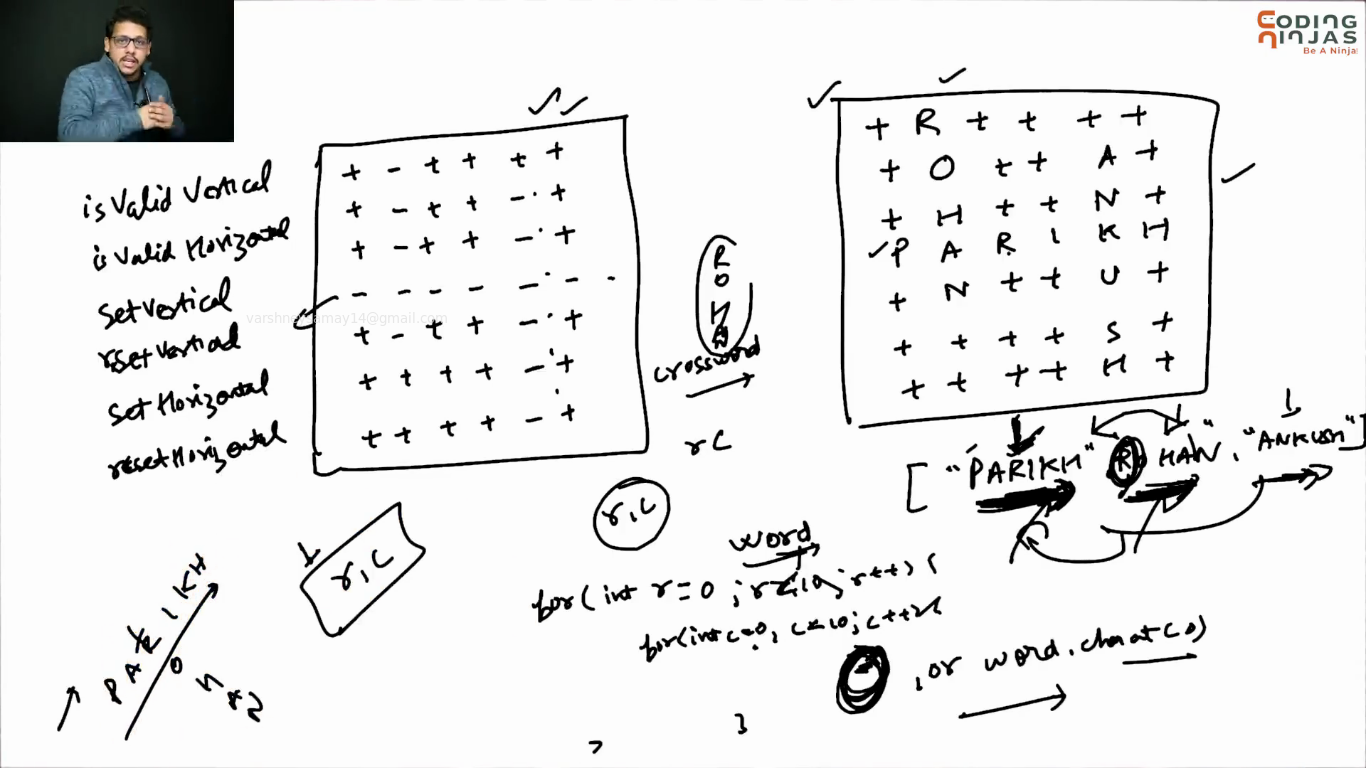 CODING
NINJAS
Be A Ninja!
isValid Vertical
isValid Horizontal
Set Vertical
reset Vertical
Set Horizontal
reset Horizontal
+ - + + + +
+ - + + - +
+ - + + - +
- - - - - - -
varshneysamay14@gmail.com
+ - + + - +
+ + + + - +
+ + + + - +
R
O
H
A
N
crossword
rC
r,C
r,C
+ R + + + +
+ O + + A +
+ H + + N +
P A R I K H
+ N + + U +
+ + + + S +
+ + + + H +
["PARIKH" ROHAN", "ANKUSH"]
word
for( int r=0 ; r<10; r++) {
for(int c=0; c<10; c++){
, or word.charat(0)
}
PARIKH